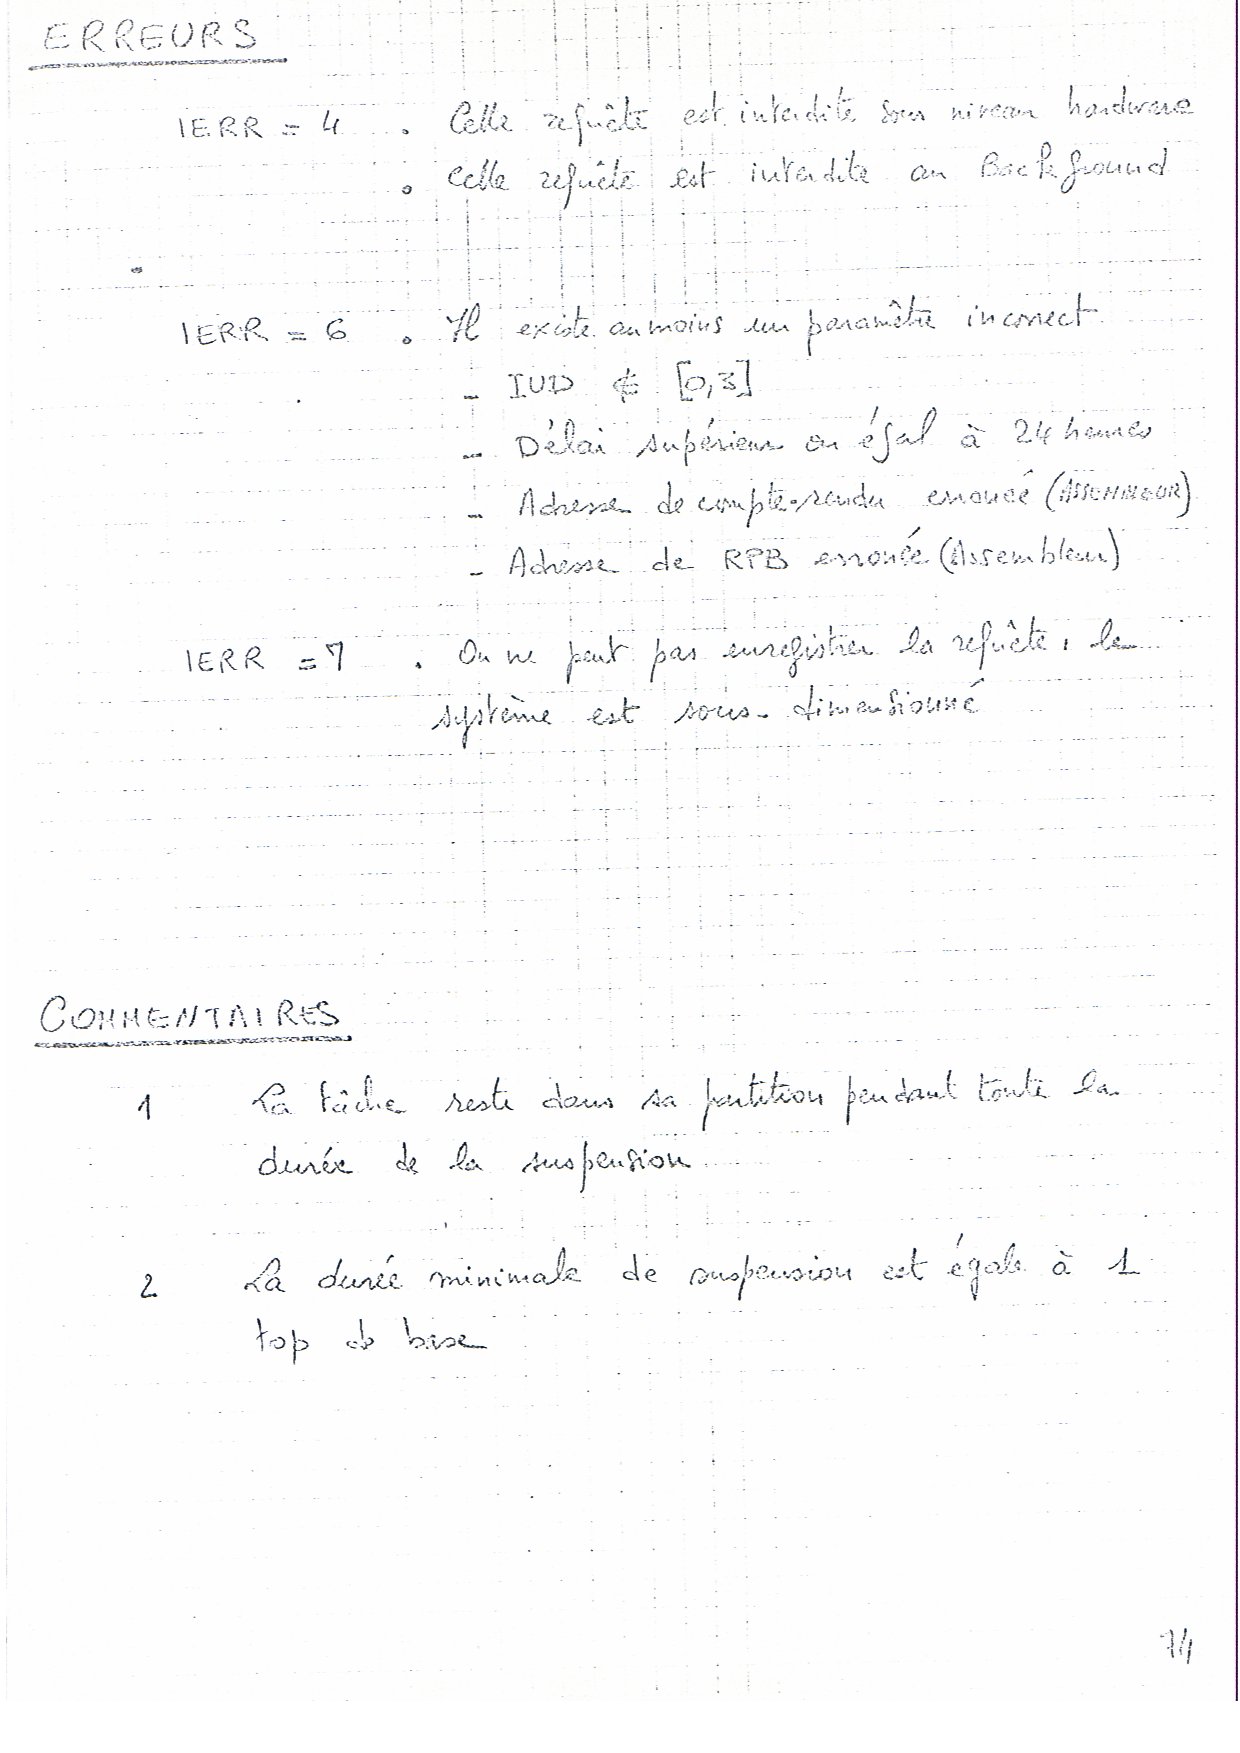 ERREURS
IERR = 4 . Cette requête est interdite sous niveau hardware
. Cette requête est interdite au Background
IERR = 6 . Il existe au moins un paramètre incorrect
- IUD ∉ [0,3]
- Délai supérieur ou égal à 24 heures
- Adresse de compte-rendu erronée (ASSEMBLEUR)
- Adresse de RPB erronée (Assembleur)
IERR = 7 . On ne peut pas enregistrer la requête, le
système est sous-dimensionné
COMMENTAIRES
1 La tâche reste dans sa partition pendant toute la
durée de la suspension
2 La durée minimale de suspension est égale à 1
top de base
74